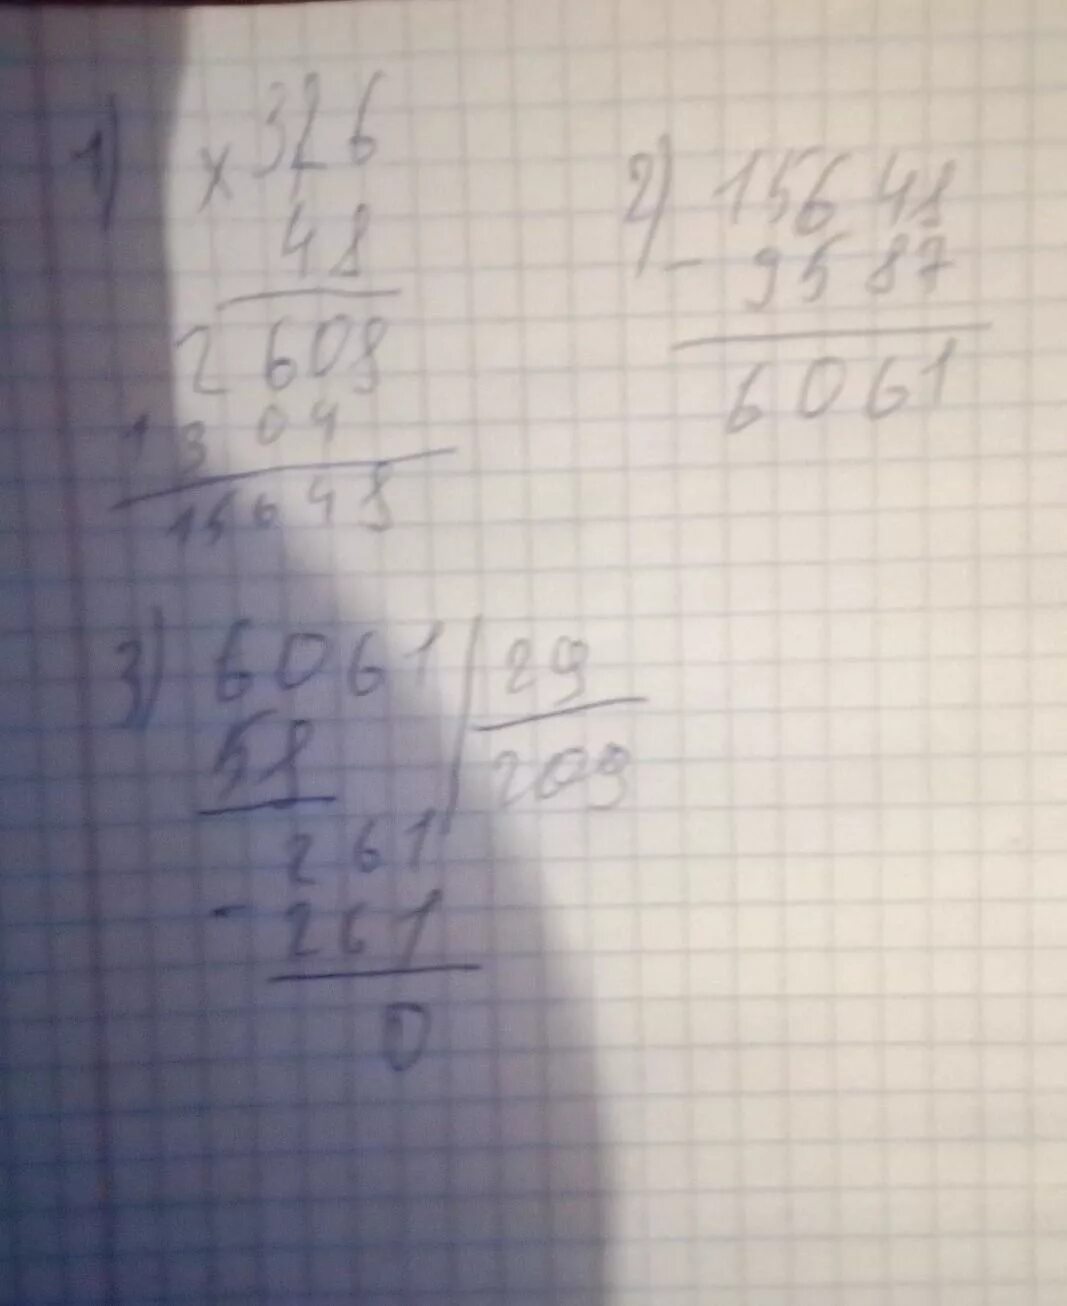 1) × 326
48
2608
1304
15648
2) 15648
- 9587
6061
3) 6061 | 29
58 209
261
- 261
0